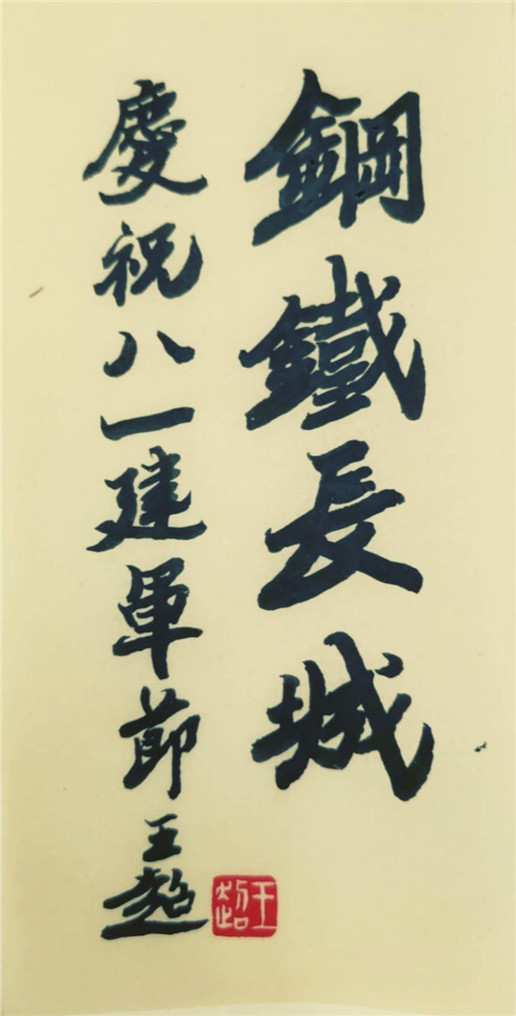 鋼鐵長城
慶祝八一建軍節
王超
王超